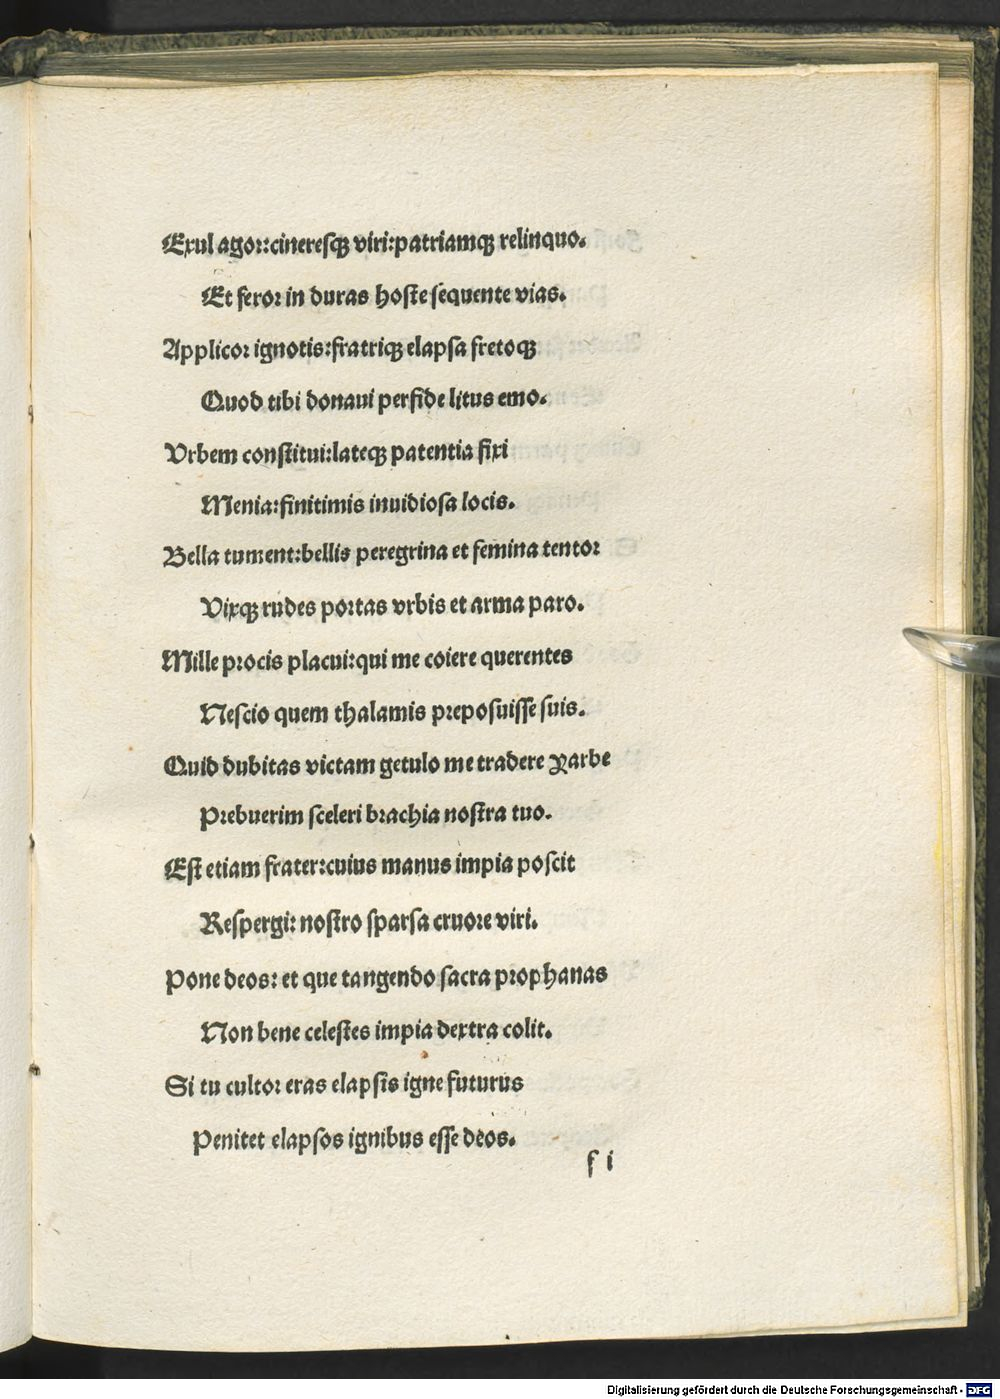 Exul agor: cineresqꝫ viri: patriamqꝫ relinquo.
Et feror in duras hoſte ſequente vias.
Applicor ignotis: fratriqꝫ elapſa fretoqꝫ
Quod tibi donaui perfide litus emo.
Vrbem conſtitui: lateqꝫ patentia fixi
Menia: finitimis inuidioſa locis.
Bella tument: bellis peregrina et femina tentor
Vixqꝫ rudes portas vrbis et arma paro.
Mille procis placui: qui me coiere querentes
Neſcio quem thalamis prepoſuiſſe ſuis.
Quid dubitas victam getulo me tradere Yarbe
Prebuerim ſceleri brachia noſtra tuo.
Eſt etiam frater: cuius manus impia poſcit
Reſpergi: noſtro ſparſa cruore viri.
Pone deos: et que tangendo ſacra prophanas
Non bene celeſtes impia dextra colit.
Si tu cultor eras elapſis igne futurus
Penitet elapſos ignibus eſſe deos.
f i
Digitalisierung gefördert durch die Deutsche Forschungsgemeinschaft - DFG